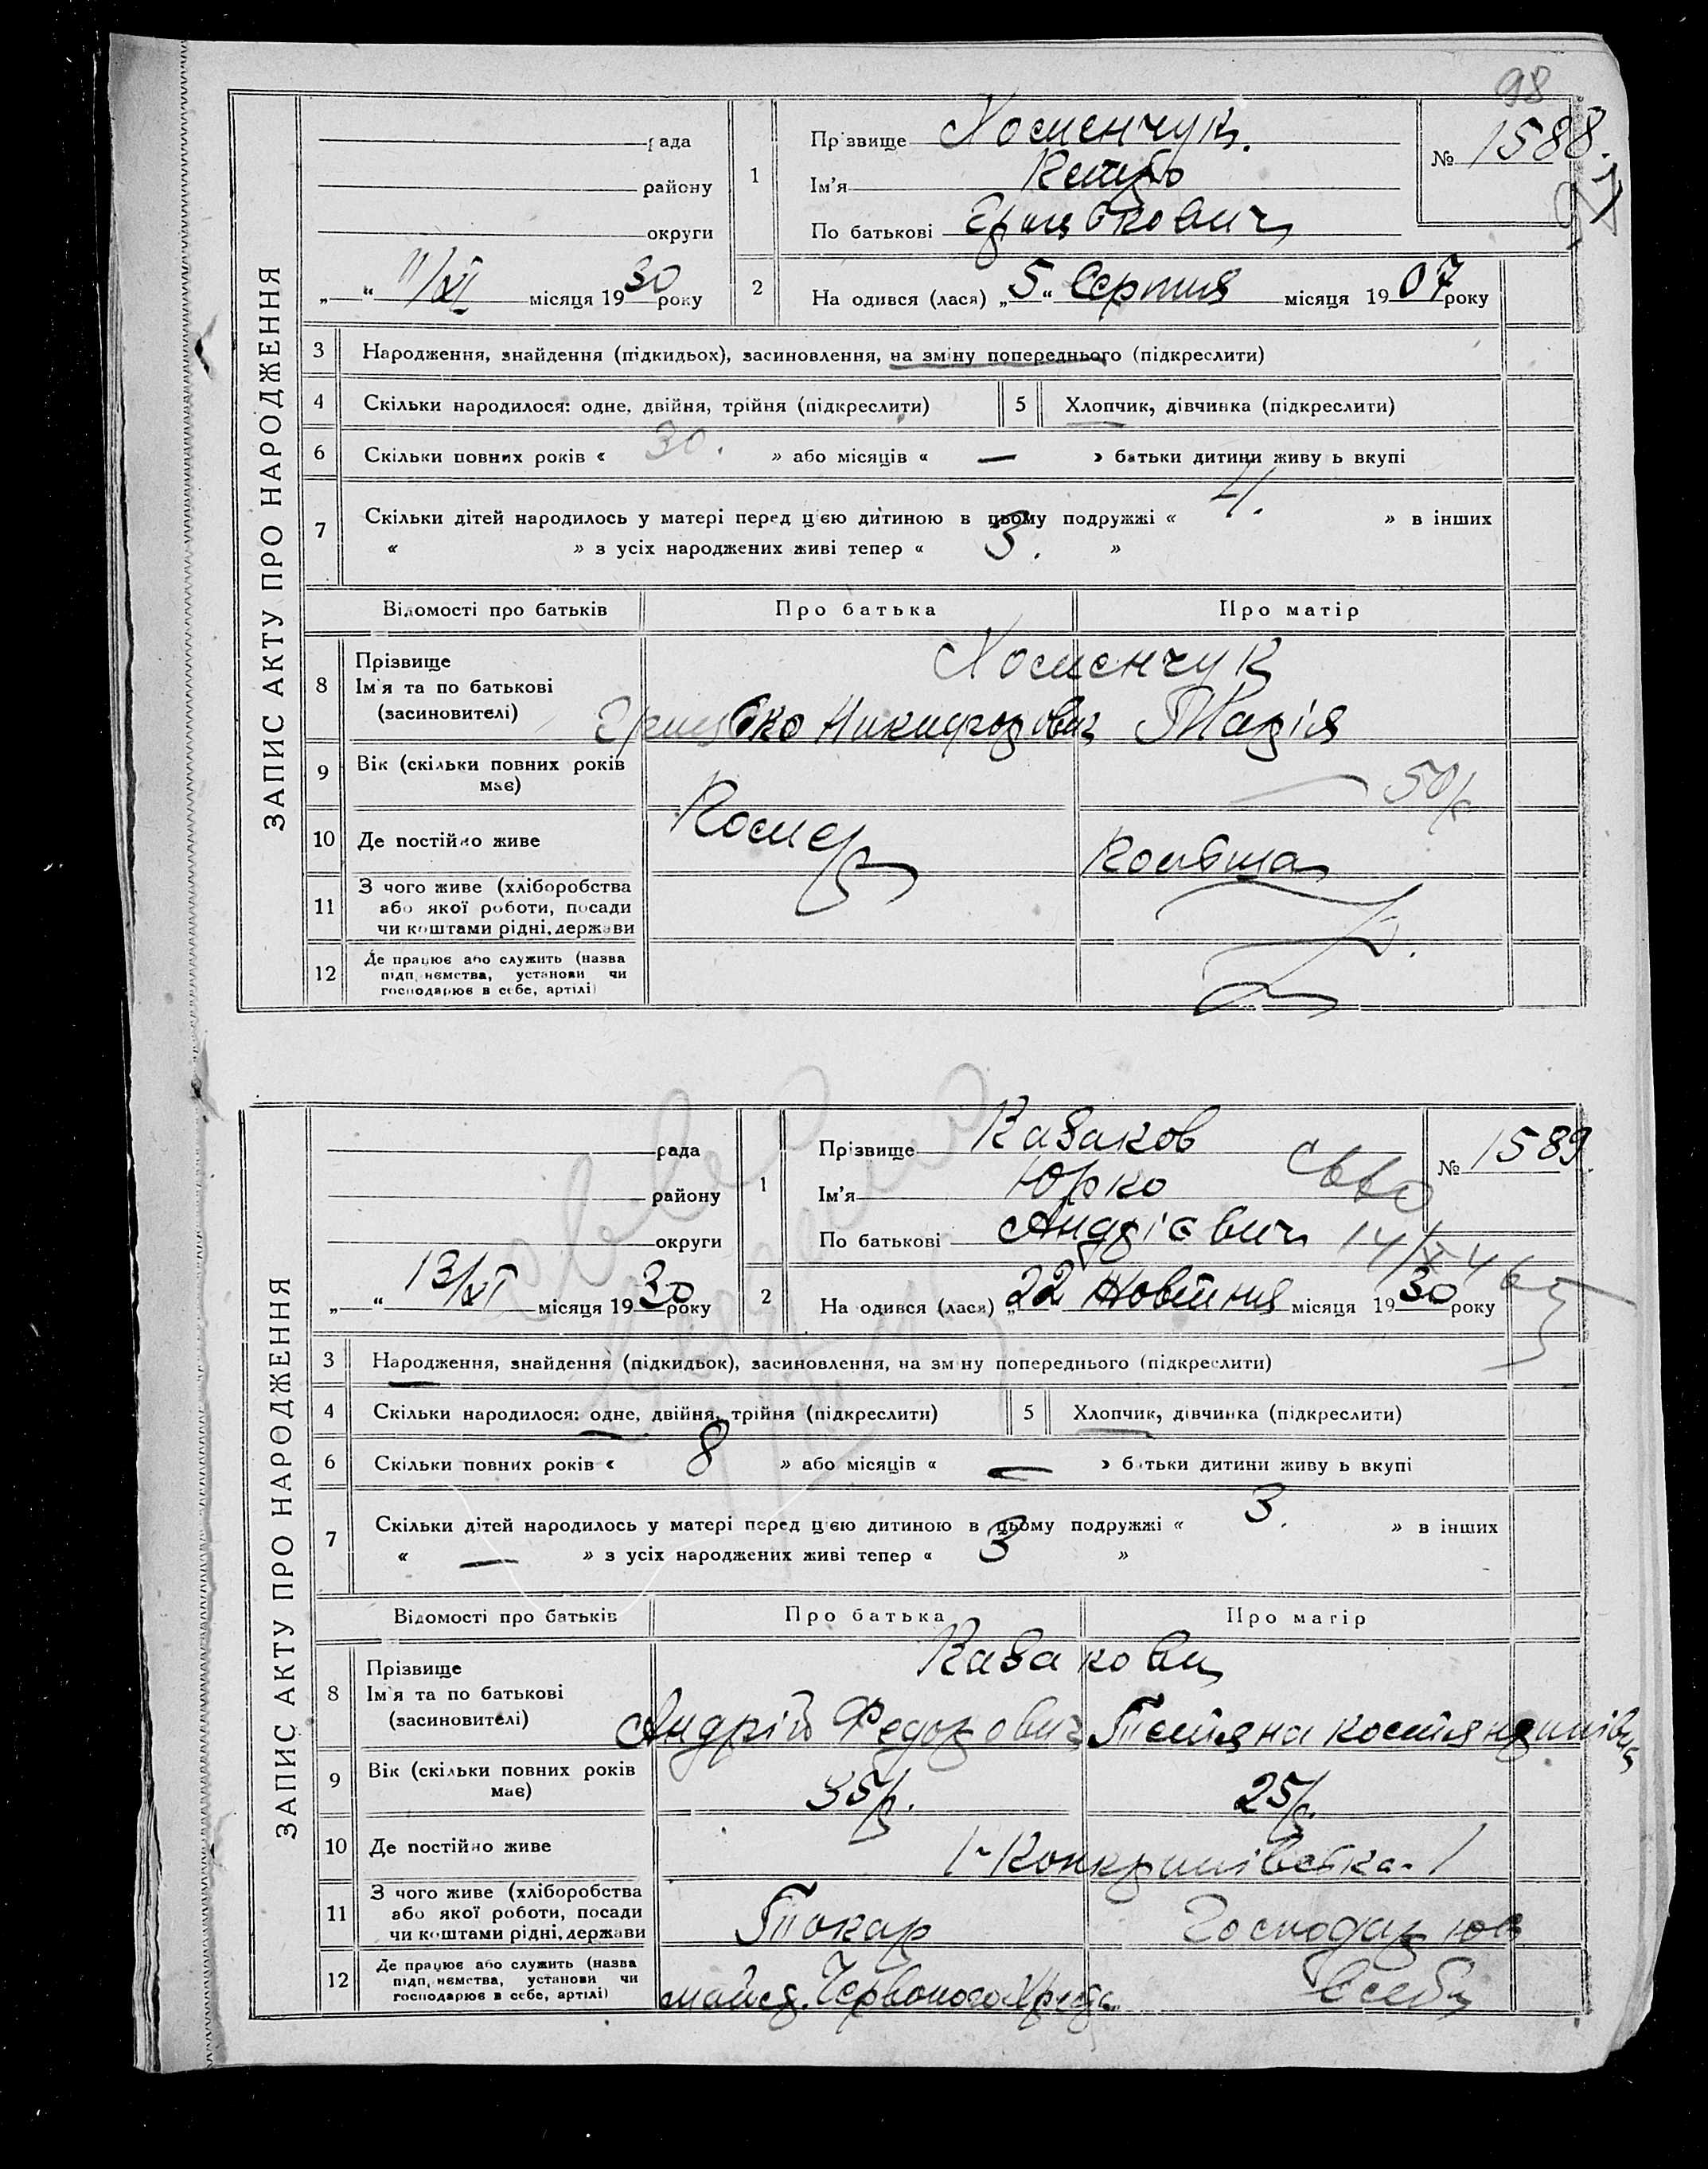 98
ЗАПИС АКТУ ПРО НАРОДЖЕННЯ
рада
району
округи
„ “ 11/XI місяця 1930 року
1
Прізвище Хоменчук.
Ім'я
По батькові
№ 1588.
2
На одився (лася) „5“ Серпня місяця 1907 року
3 Народження, знайдення (підкидьох), засиновлення, на зміну попереднього (підкреслити)
4 Скільки народилося: одне, двійня, трійня (підкреслити)
5 Хлопчик, дівчинка (підкреслити)
6 Скільки повних років « 30. » або місяців « — » батьки дитини живу ь вкупі
7 Скільки дітей народилось у матері перед цією дитиною в цьому подружжі « 4. » в інших
« » з усіх народжених живі тепер « 3. »
Відомості про батьків Про батька Про матір
8 Прізвище
Ім'я та по батькові
(засиновителі)
Хоменчук
Никифорович Марія
9 Вік (скільки повних років
має)
50/р.
10 Де постійно живе
Помер
11 З чого живе (хліборобства
або якої роботи, посади
чи коштами рідні, держави
12 Де працює або служить (назва
підп, иємства, установи чи
господарює в себе, артілі)
ЗАПИС АКТУ ПРО НАРОДЖЕННЯ
рада
району
округи
„ “ 13/XI місяця 1930 року
1
Прізвище Казаков
Ім'я Юрко
По батькові Андрієвич
№ 1589.
14/X 46
2
На одився (лася) „22 Жовтня місяця 1930 року
3 Народження, знайдення (підкидьок), засиновлення, на зміну попереднього (підкреслити)
4 Скільки народилося: одне, двійня, трійня (підкреслити)
5 Хлопчик, дівчинка (підкреслити)
6 Скільки повних років « 8 » або місяців « — » батьки дитини живу ь вкупі
7 Скільки дітей народилось у матері перед цією дитиною в цьому подружжі « 3. » в інших
« — » з усіх народжених живі тепер « 3 »
Відомості про батьків Про батька Про матір
8 Прізвище
Ім'я та по батькові
(засиновителі)
Казакови
Андрій Федорович Тетяна Костянтинівна
9 Вік (скільки повних років
має)
35/р. 25/р.
10 Де постійно живе
11 З чого живе (хліборобства
або якої роботи, посади
чи коштами рідні, держави
Токар Господарює
12 Де працює або служить (назва
підп, иємства, установи чи
господарює в себе, артілі)
майст. Червоного Хреста. в себе